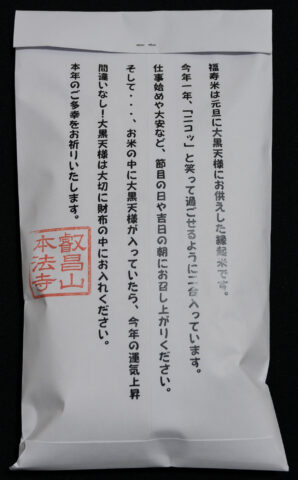 福寿米は元旦に大黒天様にお供えした縁起米です。
今年一年、「ニコッ」と笑って過ごせるように二合入っています。
仕事始めや大安など、節目の日や吉日の朝にお召し上がりください。
そして・・・、お米の中に大黒天様が入っていたら、今年の運気上昇
間違いなし！大黒天様は大切に財布の中にお入れください。
本年のご多幸をお祈りいたします。
叡昌山
本法寺